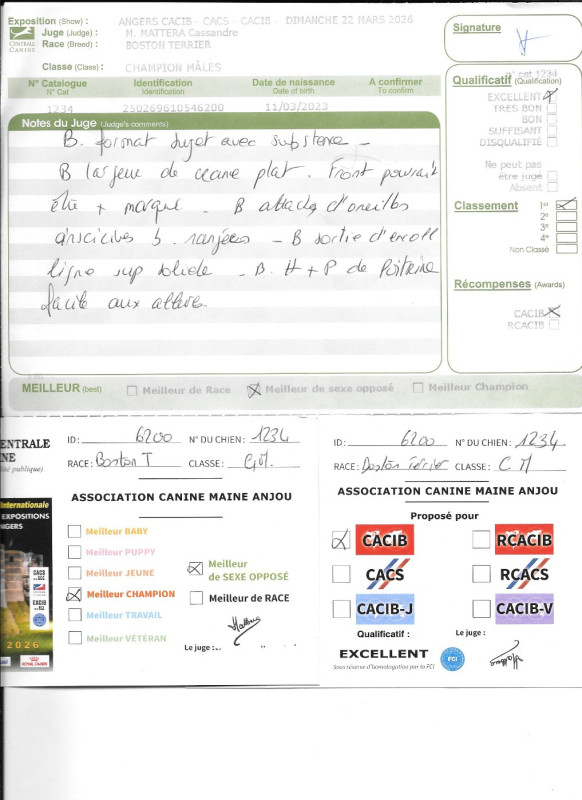 Exposition (Show) : ANGERS CACIB - CACS - CACIB - DIMANCHE 22 MARS 2026
CENTRALE CANINE
Juge (Judge) : M. MATTERA Cassandre
Race (Breed) : BOSTON TERRIER
Classe (Class) : CHAMPION MÂLES
N° Catalogue Identification Date de naissance A confirmer
N° Cat Identification Date of birth To confirm
1234 250269610546200 11/03/2023
Notes du Juge (Judge's comments)
B. format sujet avec substance -
B largeur de crane plat. Front pourrait
être + marqué - B attache d'oreilles
incisives b. rangées - B sortie d'encol
ligne sup solide - B. H + P de Poitrine
facile aux allures.
MEILLEUR (best) Meilleur de Race Meilleur de sexe opposé Meilleur Champion
Signature
n° cat 1234
Qualificatif (Qualification)
EXCELLENT
TRES BON
BON
SUFFISANT
DISQUALIFIÉ
Ne peut pas
être jugé
Absent
Classement 1er
2e
3e
4e
Non Classé
Récompenses (Awards)
CACIB
RCACIB
CENTRALE
NE
publique)
Internationale
EXPOSITIONS
NGERS
CACS
CACIB
2026
ROYAL CANIN
ID : 6200 N° DU CHIEN : 1234
RACE : Boston T CLASSE : CM.
ASSOCIATION CANINE MAINE ANJOU
Meilleur BABY
Meilleur PUPPY
Meilleur JEUNE
Meilleur CHAMPION
Meilleur TRAVAIL
Meilleur VÉTÉRAN
Meilleur
de SEXE OPPOSÉ
Meilleur de RACE
Le juge :
ID : 6200 N° DU CHIEN : 1234
RACE : Boston Terrier CLASSE : C M
ASSOCIATION CANINE MAINE ANJOU
Proposé pour
CACIB RCACIB
CACS RCACS
CACIB-J CACIB-V
Qualificatif : Le juge :
EXCELLENT FCI
Sous réserve d'homologation par la FCI